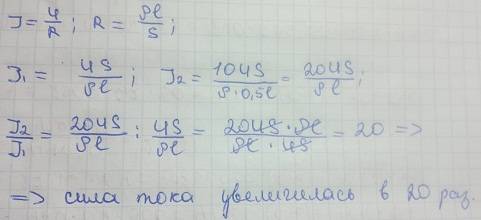 I = U/R; R = ρl/S;
I₁ = US/ρl; I₂ = 10US/ρ·0,5l = 20US/ρl;
I₂/I₁ = 20US/ρl : US/ρl = 20US·ρl/ρl·US = 20 =>
=> сила тока увеличилась в 20 раз.